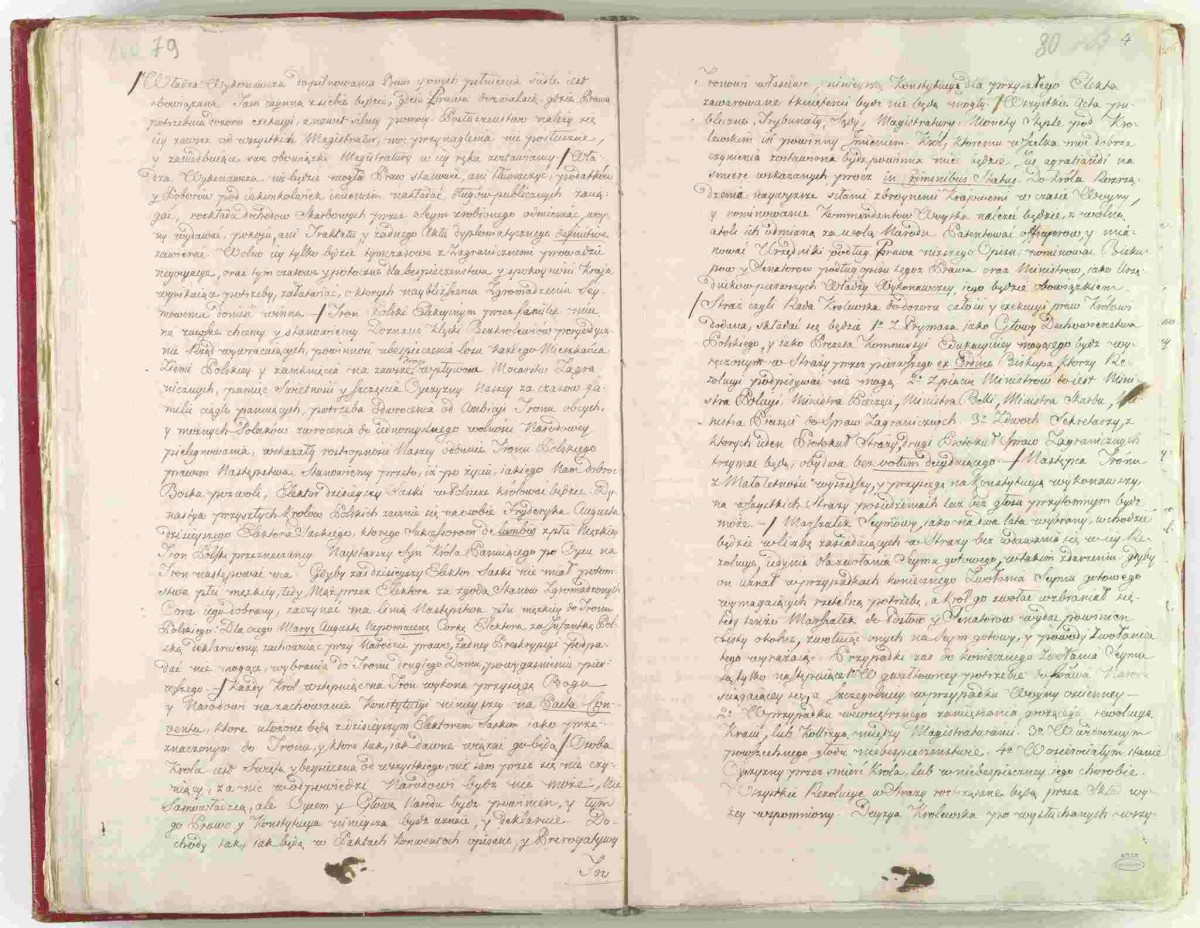 79
Władza Wykonawcza do pilnowania Praw y onych pełnienia ściśle iest
obowiązana. Tam czynna z siebie będzie, gdzie Prawa dozwalaią, gdzie Prawa
potrzebuią dozoru exekucyi, a nawet silney pomocy. Posłuszeństwo należy się
iey zawsze od wszystkich Magistratur, moc przynaglenia nie posłuszne,
y zaniedbuiące swe obowiązki Magistratury w iey ręku zostawuiemy. / Wła-
dza Wykonawcza nie będzie mogła Praw stanowić, ani tłumaczyć, podatków
y Poborów pod iakimkolwiek imieniem nakładać, długów publicznych zacią-
gać, rozkładu dochodów Skarbowych przez Seym zrobionego odmieniać, woy-
ny wydawać, pokoiu, ani Traktatu y żadnego Aktu dyplomatycznego definitive
zawierać. Wolno iey tylko będzie tymczasowe z Zagranicznemi prowadzić
negocyacye, oraz tymczasowe y potoczne dla bezpieczeństwa y spokoyności Kraiu
wynikaiące potrzeby załatwiać, o których naybliższemu Zgromadzeniu Sey-
mowemu donieść winna. / Tron Polski Elekcyinym przez familie mieć
na zawsze chcemy y stanowiemy. Doznane klęski Bezkrólewiów peryodycz-
nie Rząd wywracaiących, powinność ubezpieczenia losu każdego Mieszkańca
Ziemi Polskiey y zamknięcia na zawsze wpływom Mocarstw Zagra-
nicznych, pamięć Świetności y Szczęścia Oyczyzny Naszey za czasów fa-
milii ciągle panuiących, potrzeba odwrócenia od Ambicyi Tronu obcych,
y możnych Polaków zwrócenia do iednomyślnego wolności Narodowey
pielęgnowania, wskazały roztropności Naszey oddanie Tronu Polskiego
prawem Następstwa. Stanowiemy przeto, iż po życiu, iakiego Nam dobroć
Boska pozwoli, Elektor dzisieyszy Saski w Polszcze królować będzie. Dy-
nastya przyszłych Królów Polskich zacznie się na osobie Fryderyka Augusta,
dzisieyszego Elektora Saskiego, którego Sukcessorom de lumbis z płci Męzkiey
Tron Polski przeznaczamy. Naystarszy Syn Króla Panuiącego po Oycu na
Tron następować ma. Gdyby zaś dzisieyszy Elektor Saski nie miał potom-
stwa płci męzkiey, tedy Mąż przez Elektora za zgodą Stanów Zgromadzonych
Córce iego dobrany, zaczynać ma linią Następstwa płci męzkiey do Tronu
Polskiego. Dla czego Maryą Augustę Nepomucenę Córkę Elektora, za Infantkę Pol-
ską deklaruiemy, zachowuiąc przy Narodzie prawo, żadney Preskrypcyi podpa-
dać nie mogące, wybrania do Tronu drugiego Domu, po wygaśnieniu pier-
wszego. / Każdy Król wstępuiąc na Tron wykona przysięgę Bogu
y Narodowi na zachowanie Konstytucyi ninieyszey, na Pacta Con-
venta, które ułożone będą z dzisieyszym Elektorem Saskim iako prze-
znaczonym do Tronu, y które tak, iak dawne wiązać go będą. / Osoba
Króla iest Święta y bezpieczna od wszystkiego, nic sam przez się nie czy-
niący, za nic w odpowiedzi Narodowi bydź nie może, Nie
Samowładcą, ale Oycem y Głową Narodu bydź powinien, y tym
go Prawo y Konstytucya ninieysza bydź uznaie, y deklaruie. Do-
chody tak, iak będą w Paktach Konwentach opisane, y Prerogatywy
Tro
80 4
Tronowi właściwe, ninieyszą Konstytucyą dla przyszłego Elekta
zawarowane tknięteni bydź nie będą mogły. / Wszystkie Acta pu-
bliczne, Trybunały, Sądy, Magistratury, Monety, Stęple pod Kró-
lewskim iść powinny Imieniem. Król, któremu wszelka moc dobrze
czynienia zostawiona bydź powinna mieć będzie Jus agratiandi na
śmierć wskazanych, procz in Criminibus Status. Do Króla Rozrzą-
dzenia naywyższe siłami zbroynemi Kraiowemi w czasie Woyny,
y nominowanie Kommendantów Woyska należeć będzie, z wolną
atoli ich odmianą za wolą Narodu. Patentować officyerów y mia-
nować Urzędniki podług Prawa niższego Opisu, nominować Bisku-
pów y Senatorów podług opisu tegoż Prawa oraz Ministrów, iako Urzę-
dników pierwszych Władzy Wykonawczey, iego będzie obowiązkiem.
/ Straż czyli Rada Królewska do dozoru całości y exekucyi praw Królowi
dodana, składać się będzie 1º Z Prymasa iako Głowy Duchowieństwa
Polskiego, y iako Prezesa Kommissyi Edukacyiney mogącego bydź wy-
ręczonym w Straży przez pierwszego ex Ordine Biskupa, którzy Re-
zolucyi podpisywać nie mogą. 2º Z pięciu Ministrów to iest Mini-
stra Policyi, Ministra Pieczęci, Ministra Belli, Ministra Skarbu, Mi-
nistra Pieczęci do Spraw Zagranicznych. 3º Z dwóch Sekretarzy, z
których ieden Protokuł Straży, drugi Protokuł Spraw Zagranicznych
trzymać będą, obydwa bez votum decyduiącego. / Następca Tronu
z Małoletności wyszedłszy, y przysięgę na Konstytucyą wykonawszy,
na wszystkich Straży posiedzeniach lecz bez głosu przytomnym bydź
może. / Marszałek Seymowy, iako na dwa lata wybrany, wchodzić
będzie w liczbę zasiadaiących w Straży bez wdawania się w iey Re-
zolucye, iedynie dla zwołania Seymu gotowego, w takim zdarzeniu gdyby
on uznał w przypadkach koniecznego Zwołania Seymu gotowego
wymagaiących rzetelną potrzebę, a Król go zwołać wzbraniał się,
tedy tenże Marszałek do Posłów y Senatorów wydać powinien
Listy okólne, zwołuiąc onych na Seym gotowy, y powody Zwołania
tego wyrażaiąc. Przypadki zaś do koniecznego Zwołania Seymu
są tylko następuiące: 1º W gwałtowney potrzebie do Prawa Narodu
ściągaiącey się, a szczególniey w przypadku Woyny ościenney.
2º W przypadku wewnętrznego zamieszania grożącego rewolucyą
Kraiu, lub kollizyą między Magistraturami. 3º W widocznym
powszechnego głodu niebezpieczeństwie. 4º W osierociałym stanie
Oyczyzny przez śmierć Króla, lub w niebezpieczney iego chorobie.
Wszystkie Rezolucye w Straży roztrząsane będą przez Skład wy-
żey wspomniony. Decyzya Królewska po wysłuchanych wszy-